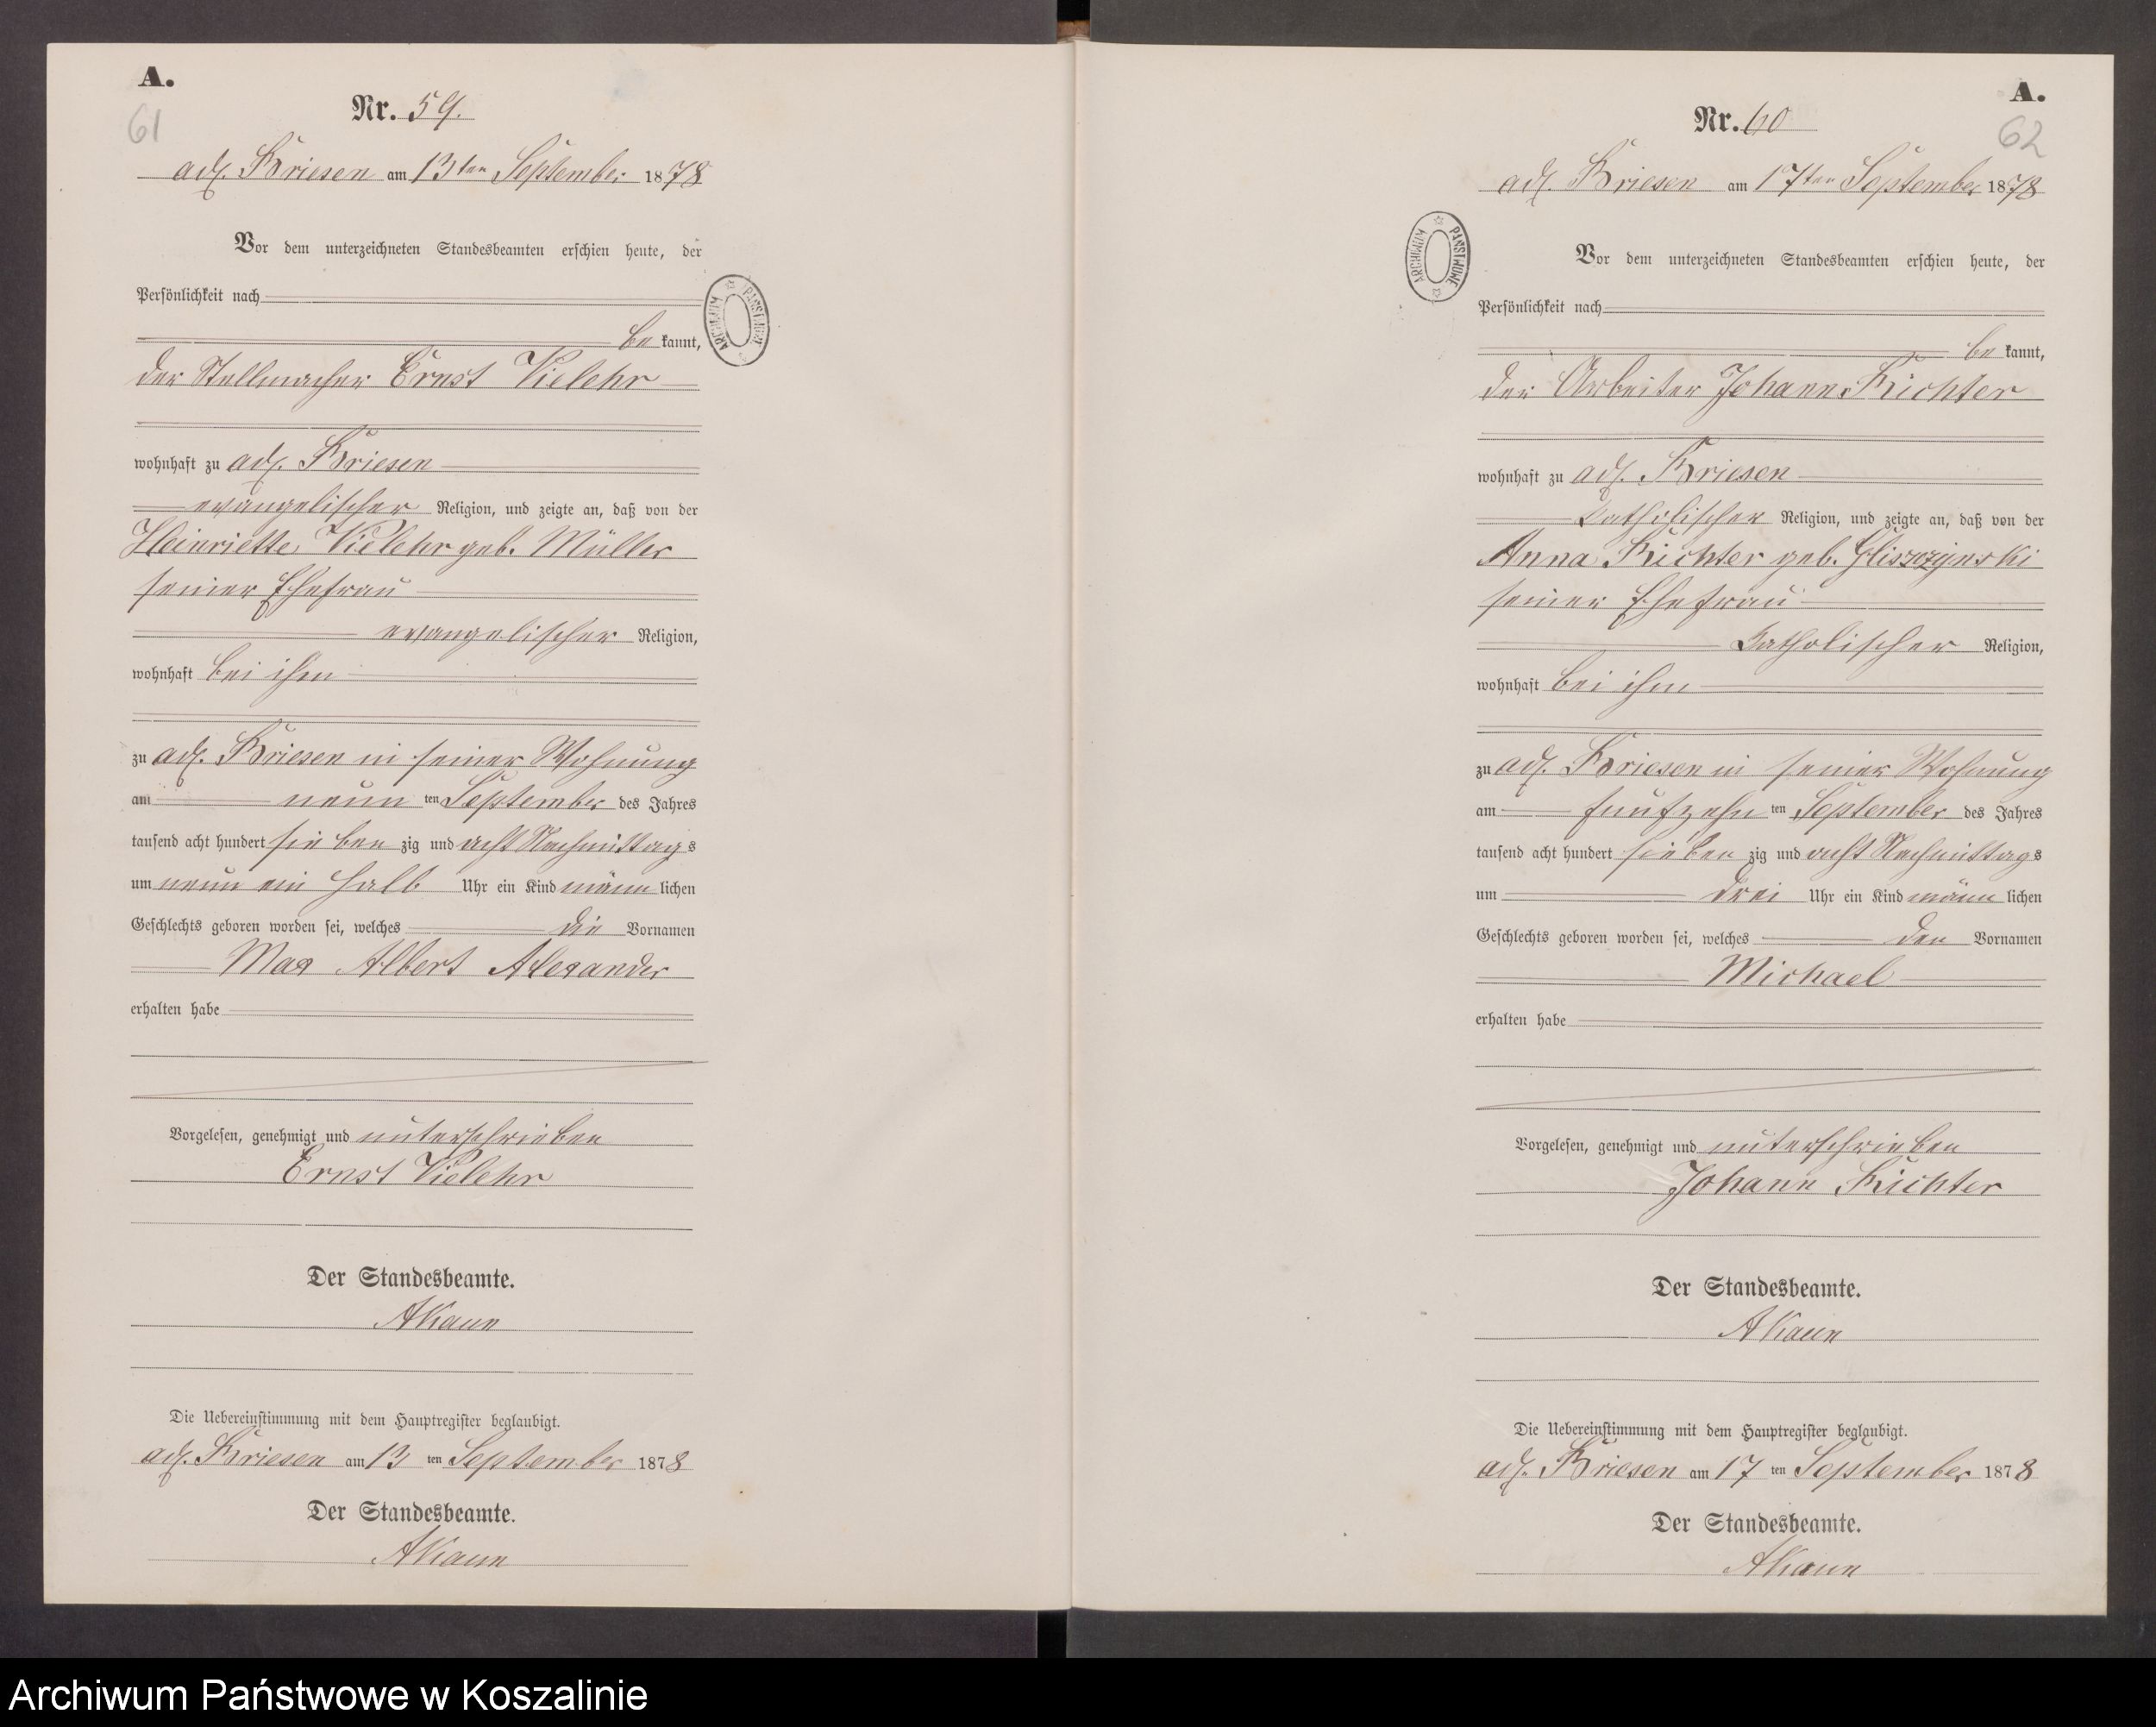 A.
61
Nr. 59.
adl. Briesen am 13ten September 1878
Vor dem unterzeichneten Standesbeamten erschien heute, der
Persönlichkeit nach
be kannt,
der Stellmacher Ernst Vielehr
wohnhaft zu adl. Briesen
evangelischer Religion, und zeigte an, daß von der
Heinriette Vielehr geb. Müller
seiner Ehefrau
evangelischer Religion,
wohnhaft bei ihm
zu adl. Briesen in seiner Wohnung
am neun ten September des Jahres
tausend acht hundert sieben zig und acht Nachmittags
um neun ein halb Uhr ein Kind männ lichen
Geschlechts geboren worden sei, welches die Vornamen
Max Albert Alexander
erhalten habe
Vorgelesen, genehmigt und unterschrieben
Ernst Vielehr
Der Standesbeamte.
AKaun
Die Uebereinstimmung mit dem Hauptregister beglaubigt.
adl. Briesen am 13 ten September 1878
Der Standesbeamte.
AKaun
ARCHIWUM PAŃSTWOWE
A.
62
Nr. 60
adl. Briesen am 17ten September 1878
Vor dem unterzeichneten Standesbeamten erschien heute, der
Persönlichkeit nach
be kannt,
der Arbeiter Johann Richter
wohnhaft zu adl. Briesen
katholischer Religion, und zeigte an, daß von der
Anna Richter geb. Gliszczynski
seiner Ehefrau
katholischer Religion,
wohnhaft bei ihm
zu adl. Briesen in seiner Wohnung
am funfzehn ten September des Jahres
tausend acht hundert sieben zig und acht Nachmittags
um drei Uhr ein Kind männ lichen
Geschlechts geboren worden sei, welches den Vornamen
Michael
erhalten habe
Vorgelesen, genehmigt und unterschrieben
Johann Richter
Der Standesbeamte.
AKaun
Die Uebereinstimmung mit dem Hauptregister beglaubigt.
adl. Briesen am 17 ten September 1878
Der Standesbeamte.
AKaun
ARCHIWUM PAŃSTWOWE
Archiwum Państwowe w Koszalinie